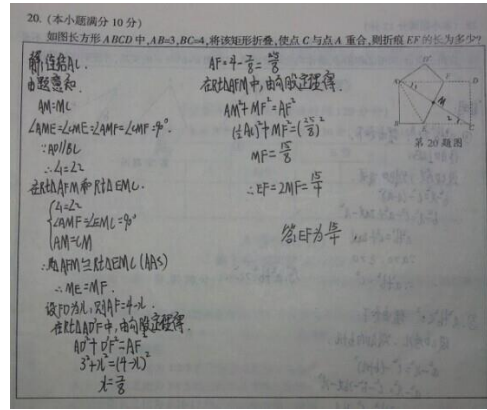 20. (本小题满分 10 分)
如图长方形 ABCD 中,AB=3,BC=4,将该矩形折叠,使点 C 与点 A 重合,则折痕 EF 的长为多少?
解:连结AC.
由题意知.
AM=MC
∠AME=∠CME=∠AMF=∠CMF=90°.
∵AD//BC
∴∠1=∠2
在Rt△AFM和Rt△EMC.
{∠1=∠2
∠AMF=∠EMC=90°
AM=CM
∴Rt△AFM≌Rt△EMC (AAS)
∴ME=MF.
设FD为x,则AF=4-x.
在Rt△AD'F中,由勾股定理得.
AD'²+D'F²=AF²
3²+x²=(4-x)²
x=7/8
AF=4-7/8=25/8
在Rt△AFM中,由勾股定理得.
AM²+MF²=AF²
(½AC)²+MF²=(25/8)²
MF=15/8
∴EF=2MF=15/4
答:EF为15/4.
第 20 题图